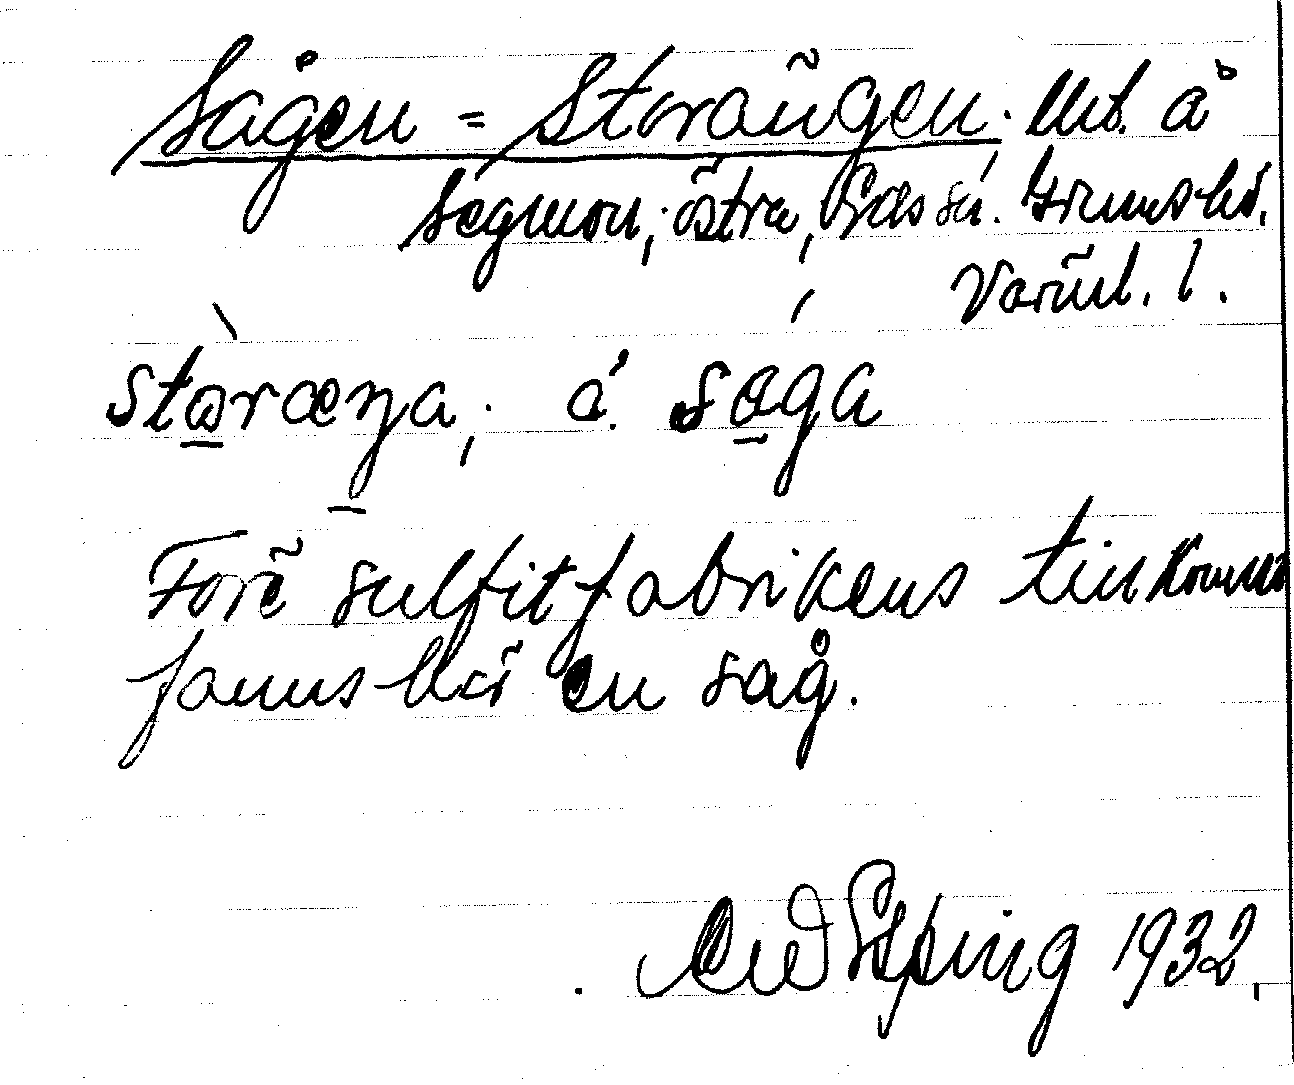 Sågen = Storängen. Utt. å
Segmon, östra, Grums hd,
Värml. l.
stòraŋa, å. såga
Före sulfitfabrikens tillkomst
fanns här en såg.
1932.